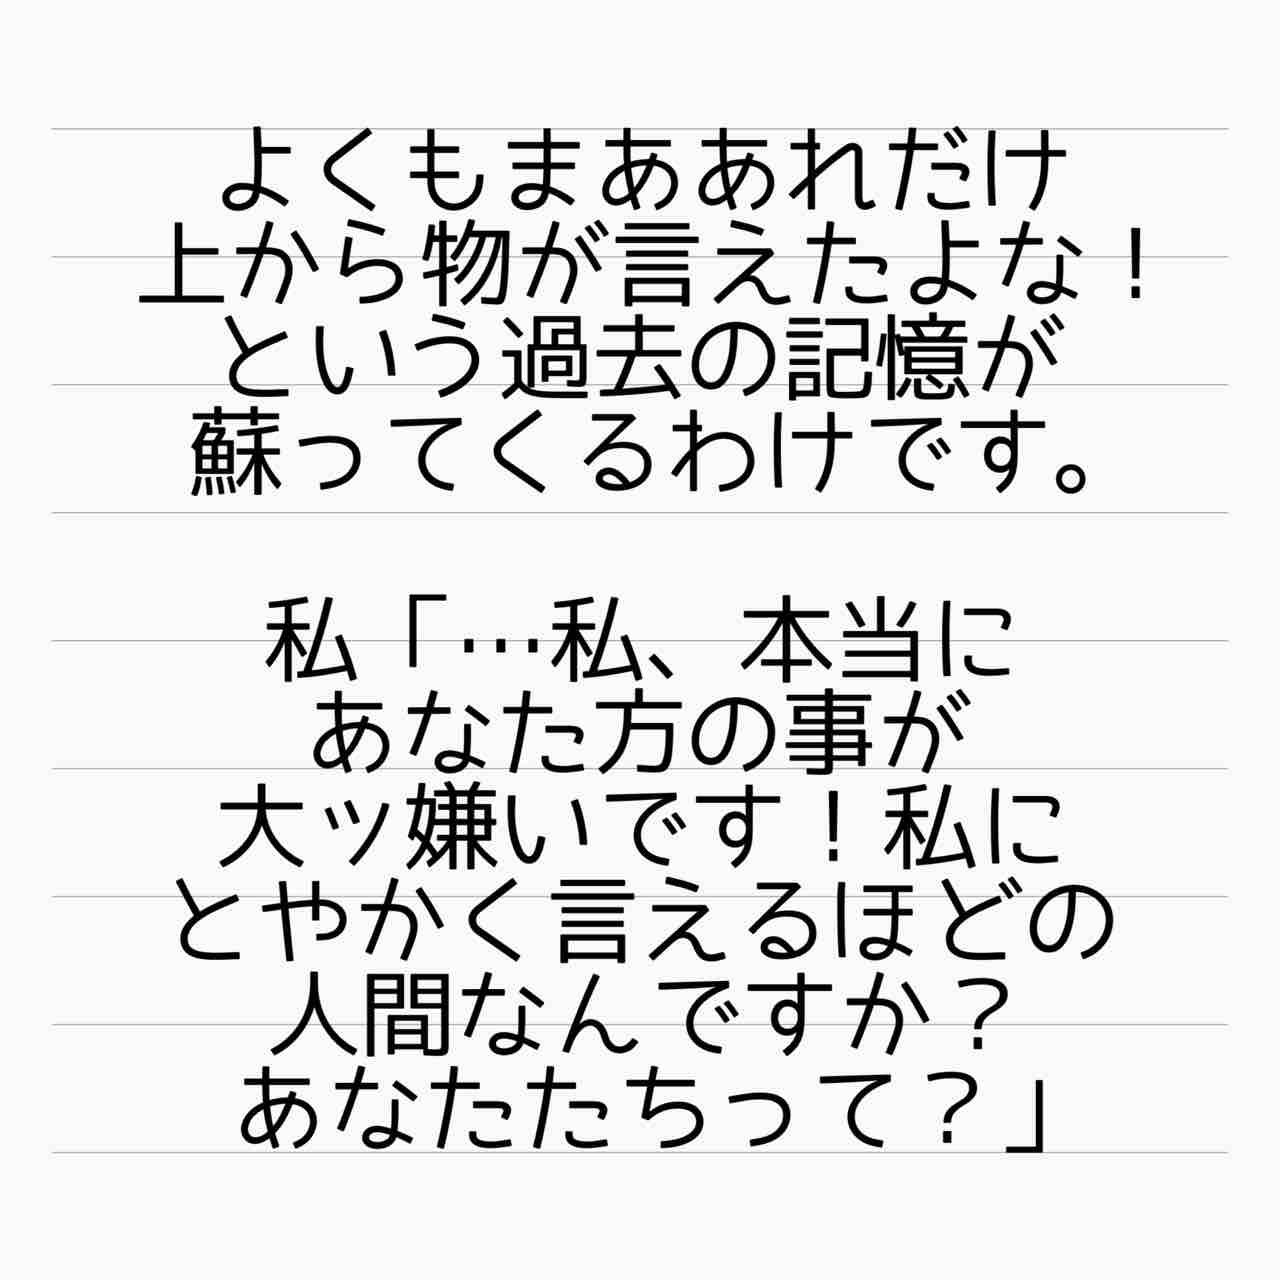 よくもまああれだけ
上から物が言えたよな！
という過去の記憶が
蘇ってくるわけです。
私「…私、本当に
あなた方の事が
大ッ嫌いです！私に
とやかく言えるほどの
人間なんですか？
あなたたちって？」